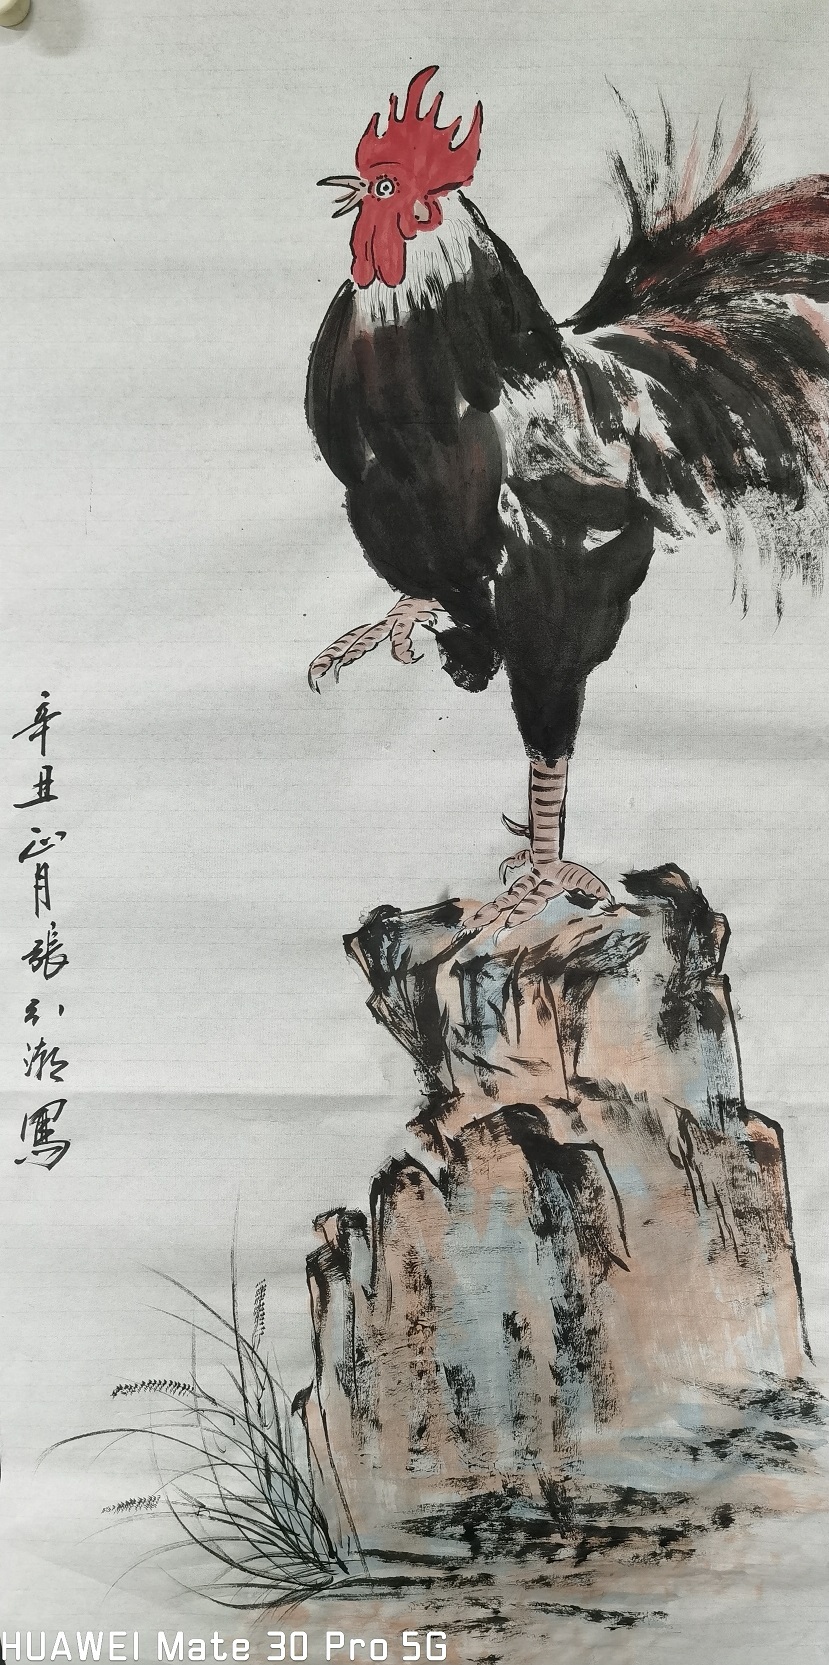 辛丑正月張引潮寫
HUAWEI Mate 30 Pro 5G